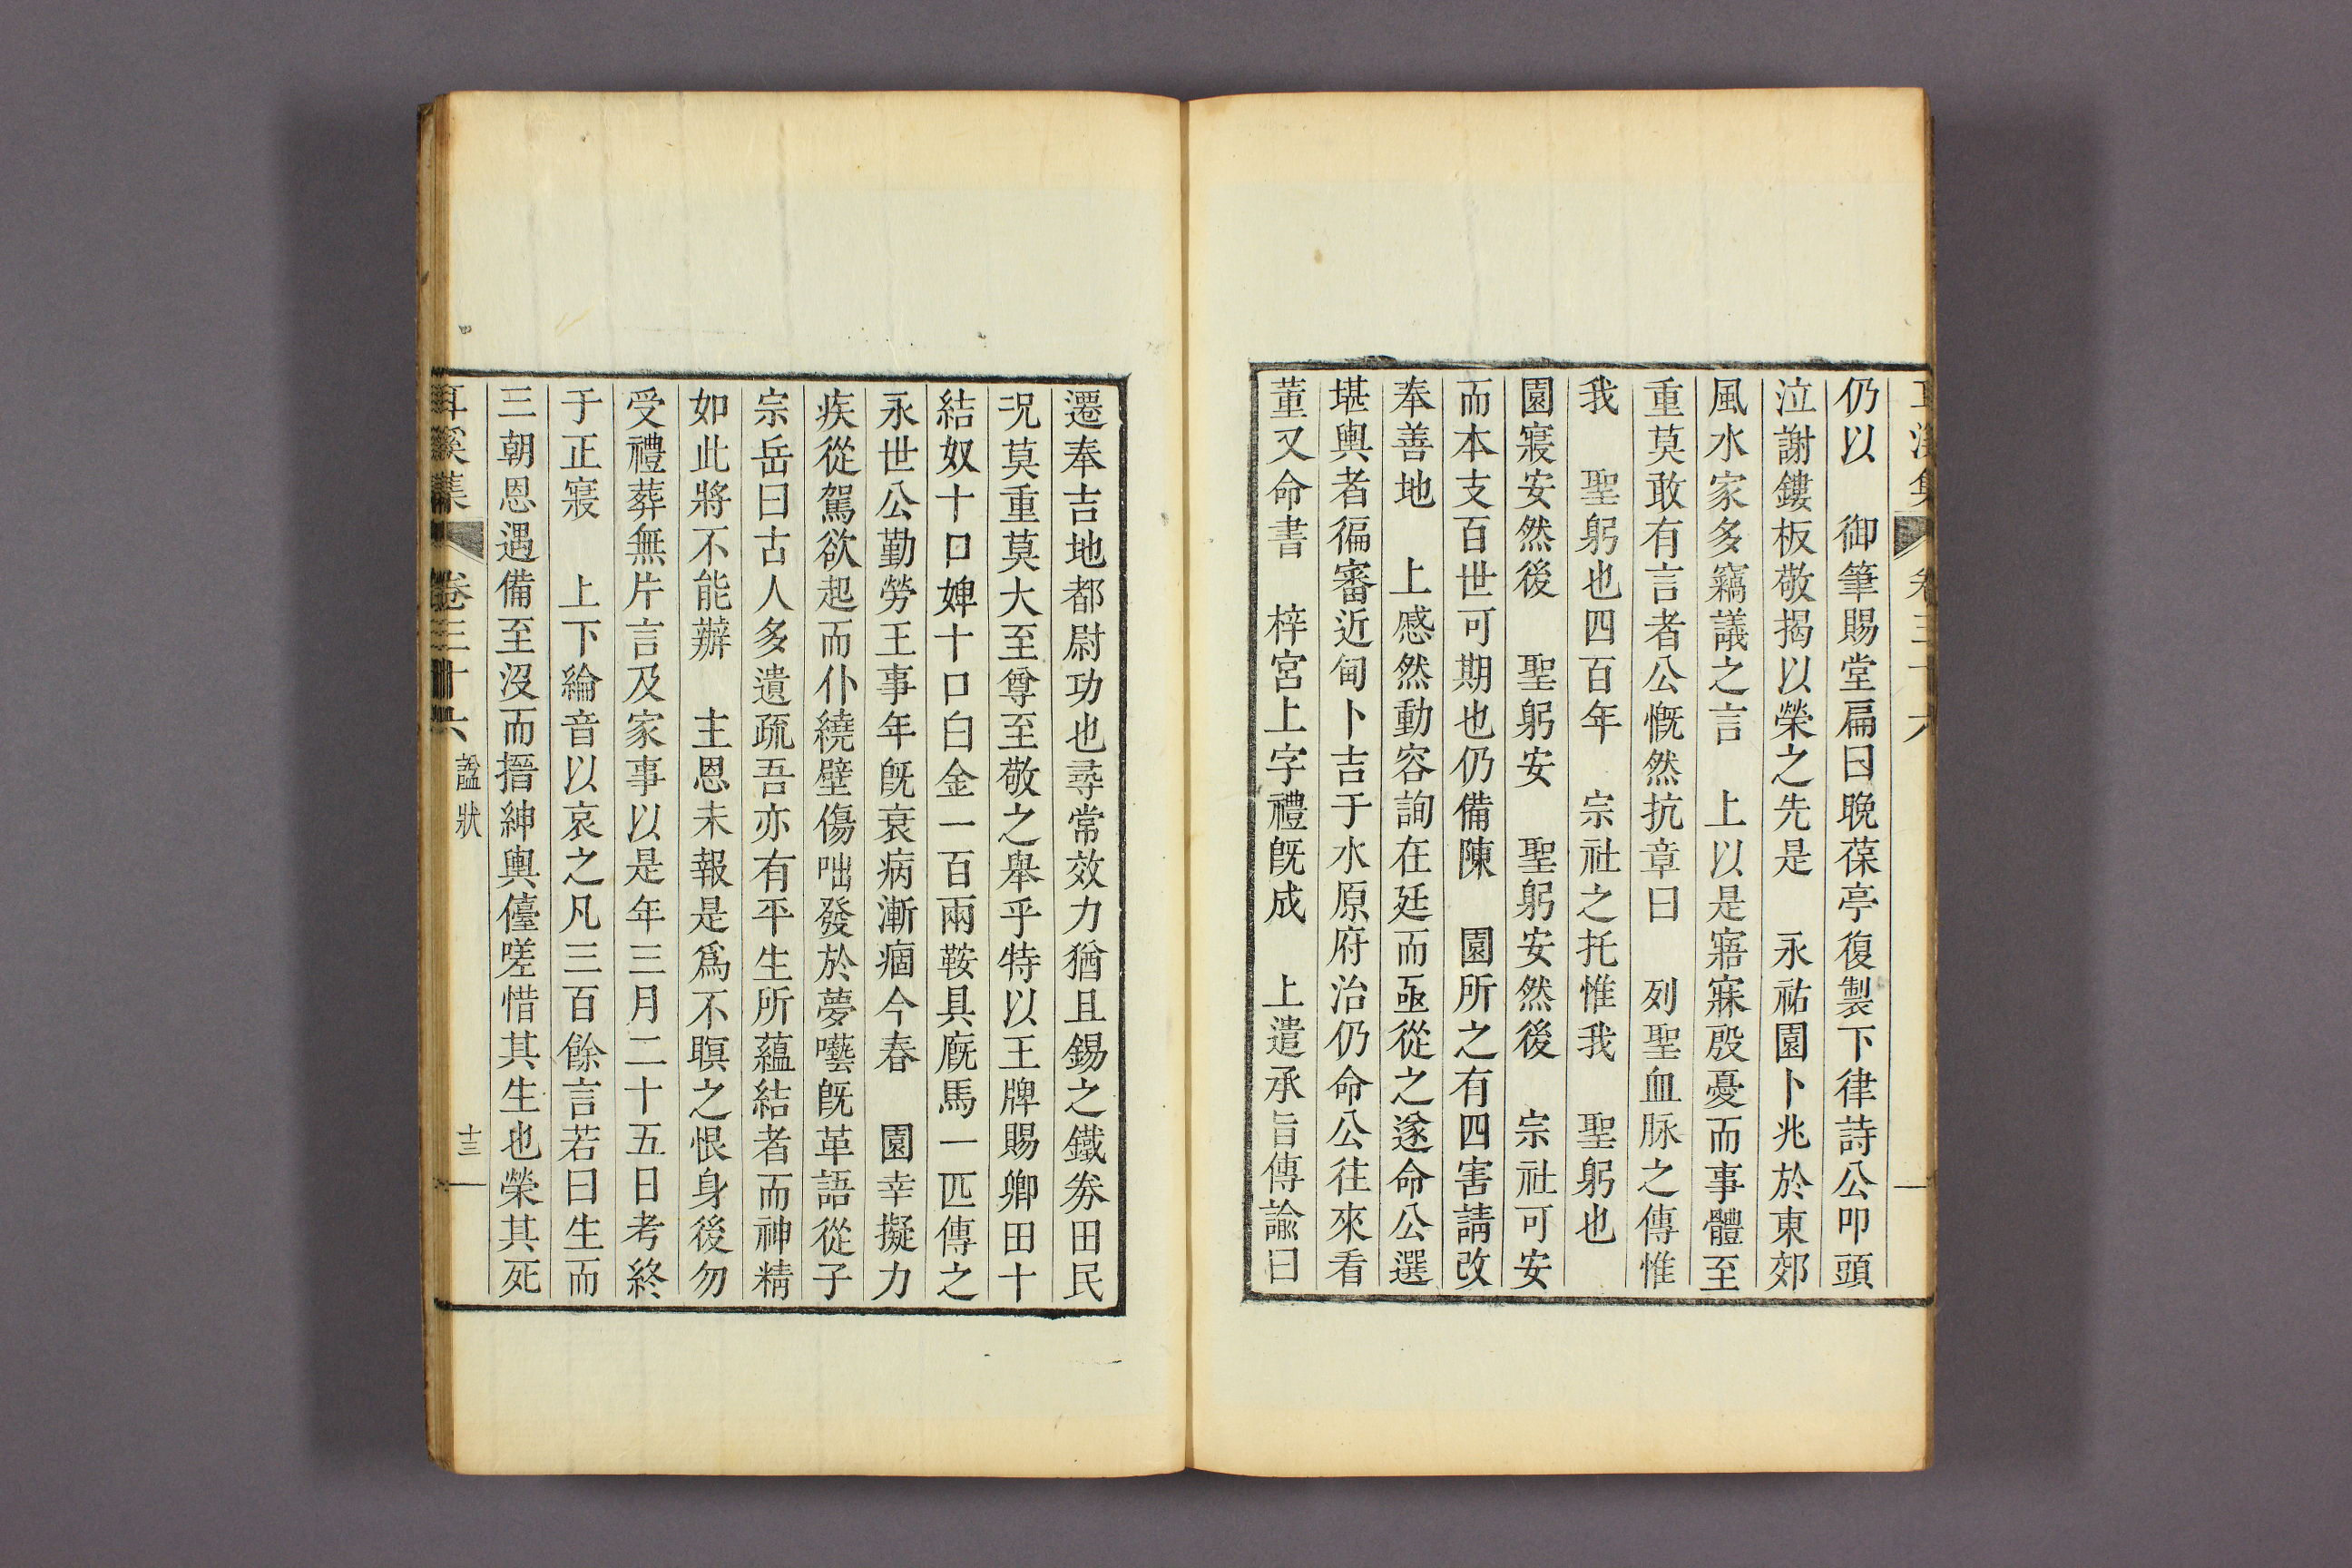 仍以　御筆賜堂扁曰晩葆亭復製下律詩公叩頭
泣謝鏤板敬揭以榮之先是　永祐園卜兆於東郊
風水家多竊議之言　上以是寤寐殷憂而事體至
重莫敢有言者公慨然抗章曰　列聖血脉之傳惟
我　聖躬也四百年　宗社之托惟我　聖躬也
園寢安然後　聖躬安　聖躬安然後　宗社可安
而本支百世可期也仍備陳　園所之有四害請改
奉善地　上慼然動容詢在廷而亟從之遂命公選
堪輿者徧審近甸卜吉于水原府治仍命公往來看
董又命書　梓宮上字禮旣成　上遣承旨傳諭曰
遷奉吉地都尉功也尋常效力猶且錫之鐵券田民
况莫重莫大至尊至敬之擧乎特以王牌賜卿田十
結奴十口婢十口白金一百兩鞍具廐馬一匹傳之
永世公勤勞王事年旣衰病漸痼今春　園幸擬力
疾從駕欲起而仆繞壁傷咄發於夢囈旣革語從子
宗岳曰古人多遺疏吾亦有平生所蘊結者而神精
如此將不能辦　主恩未報是爲不瞑之恨身後勿
受禮葬無片言及家事以是年三月二十五日考終
于正寢　上下綸音以哀之凡三百餘言若曰生而
三朝恩遇備至沒而搢紳輿儓嗟惜其生也榮其死
耳溪集　卷三十六　諡狀　十三